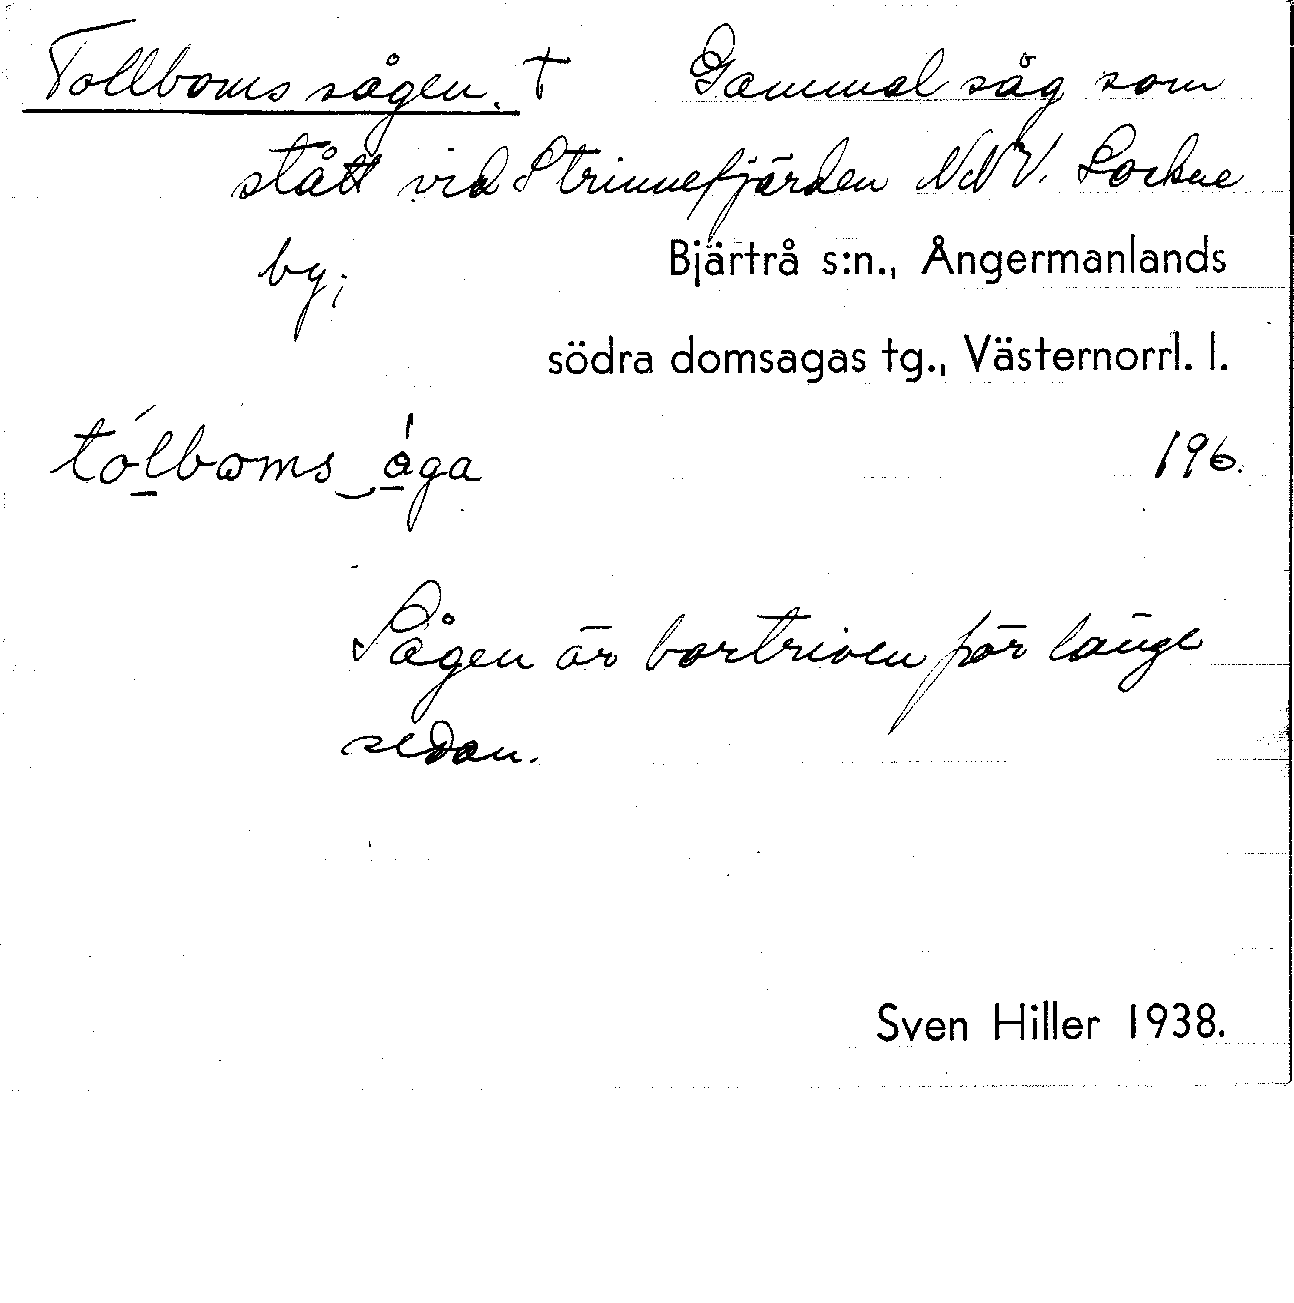 Tollbomssågen. † Gammal såg som
stått vid Strinnefjärden NNV. Lockne
by; Bjärtrå s:n., Ångermanlands
södra domsagas tg., Västernorrl. l.
tólboms‿åga 196.
Sågen är bortriven för länge
sedan.
Sven Hiller 1938.